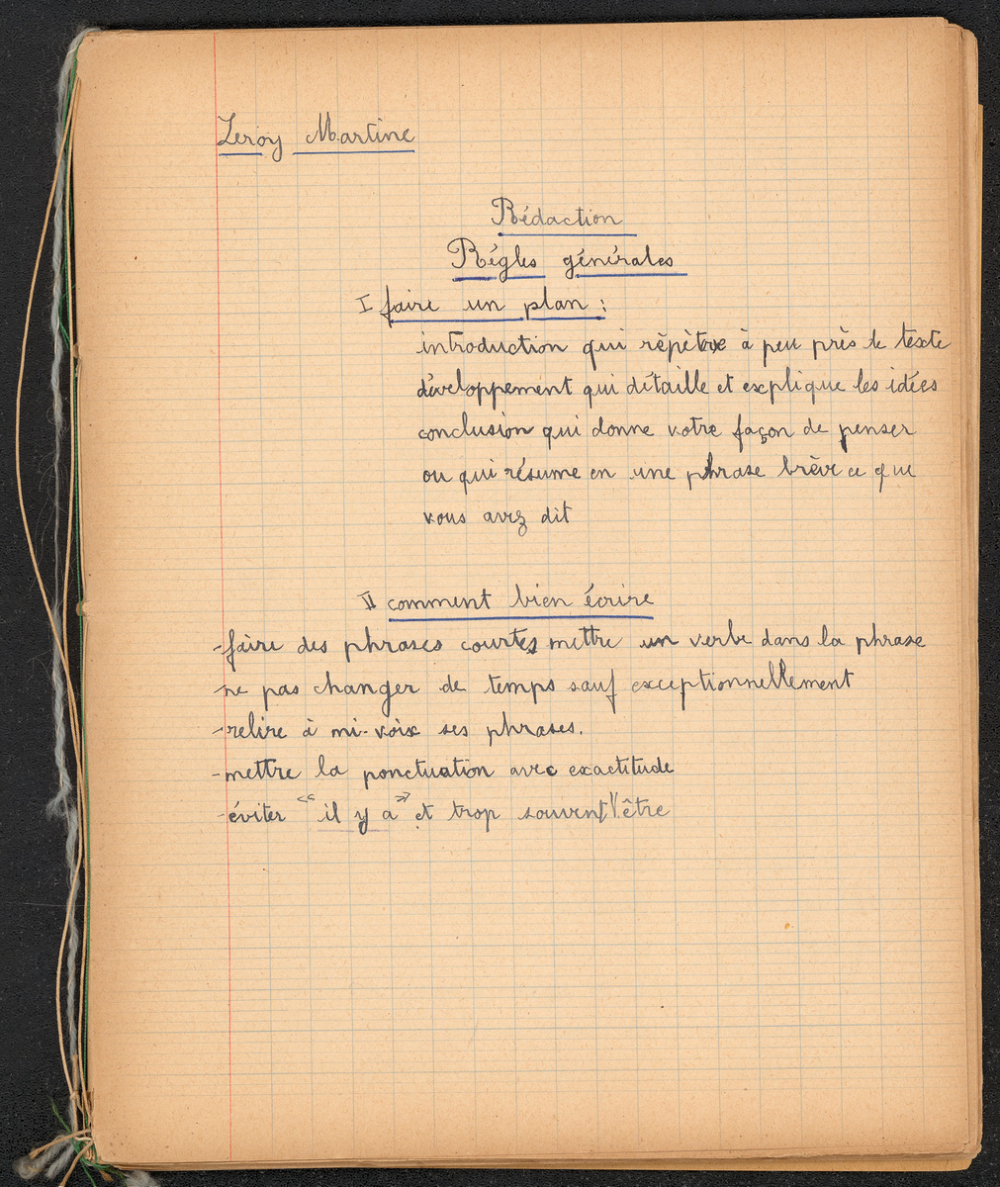 Leroy Martine
Rédaction
Régles générales
I faire un plan :
introduction qui répète à peu près le texte
développement qui détaille et explique les idées
conclusion qui donne votre façon de penser
ou qui résume en une phrase brève ce que
vous avez dit
II comment bien écrire
-faire des phrases courtes, mettre un verbe dans la phrase
-ne pas changer de temps sauf exceptionnellement
-relire à mi-voix ses phrases.
-mettre la ponctuation avec exactitude
-éviter « il y a » et trop souvent "être